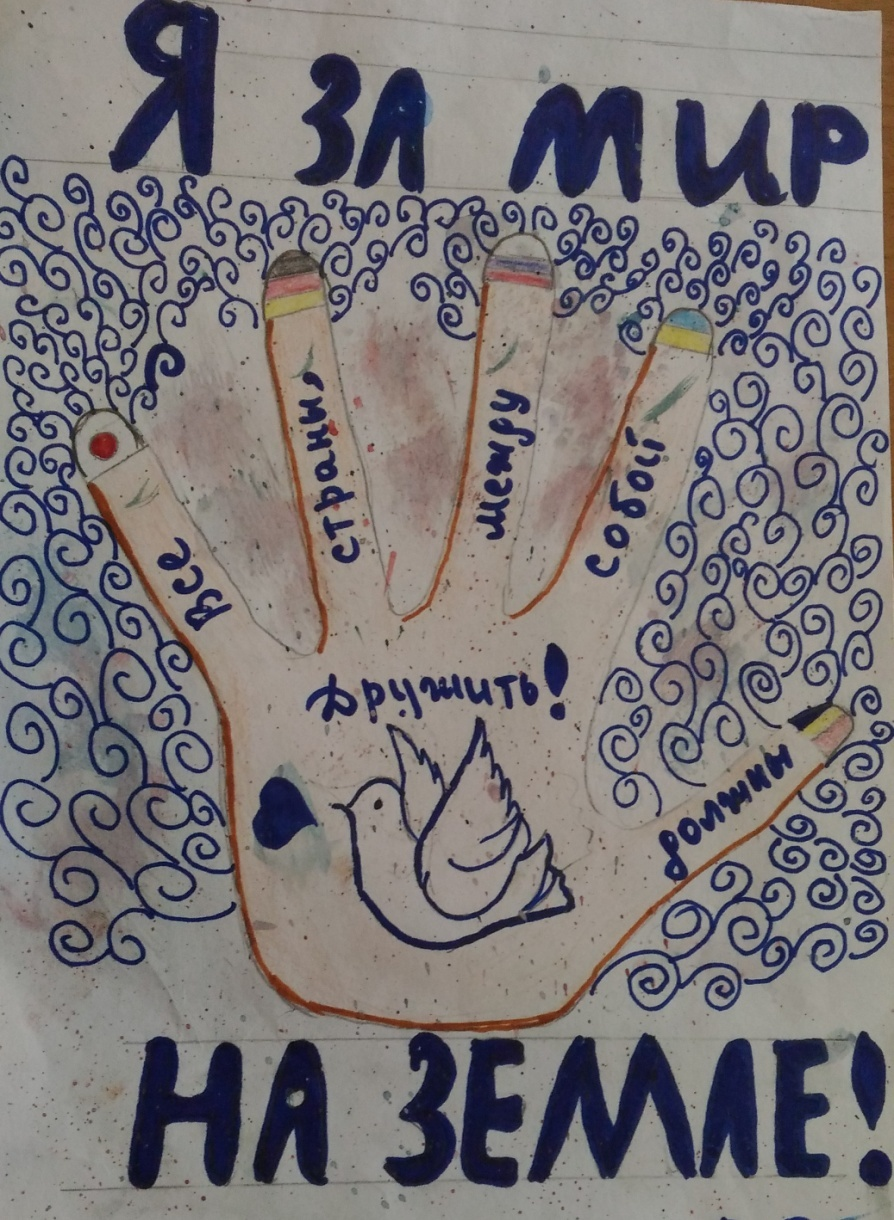 Я ЗА МИР
Все
страны
между
собой
должны
дружить!
НА ЗЕМЛЕ!